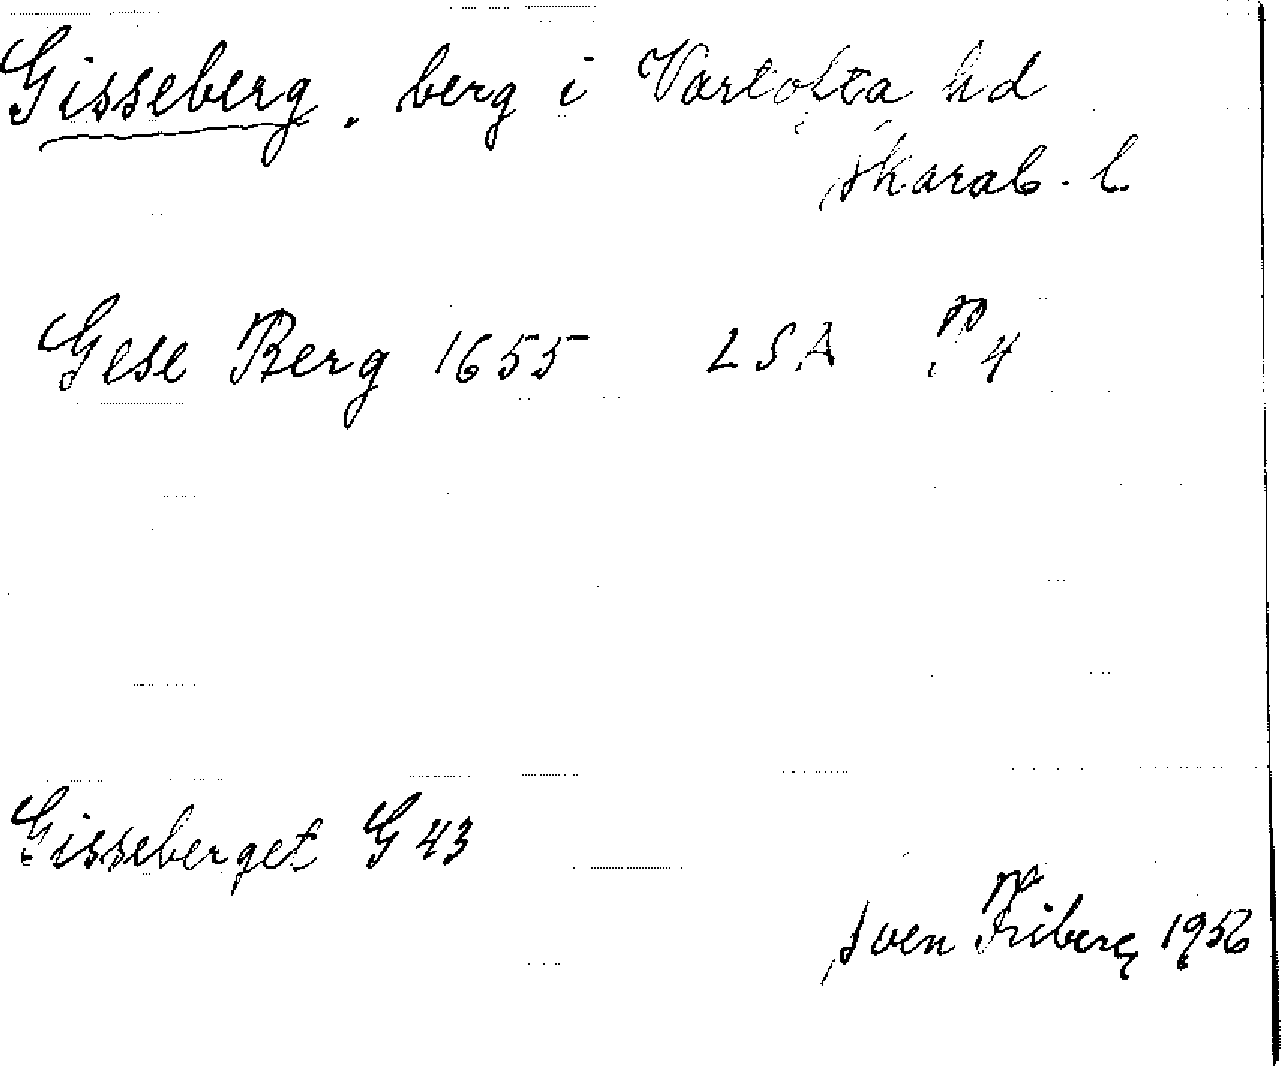 Gisseberg. berg i Vartofta hd
Skarab. l
Gese Berg 1655 LSA P 4
Gisseberget G 43
Sven Friberg 1956